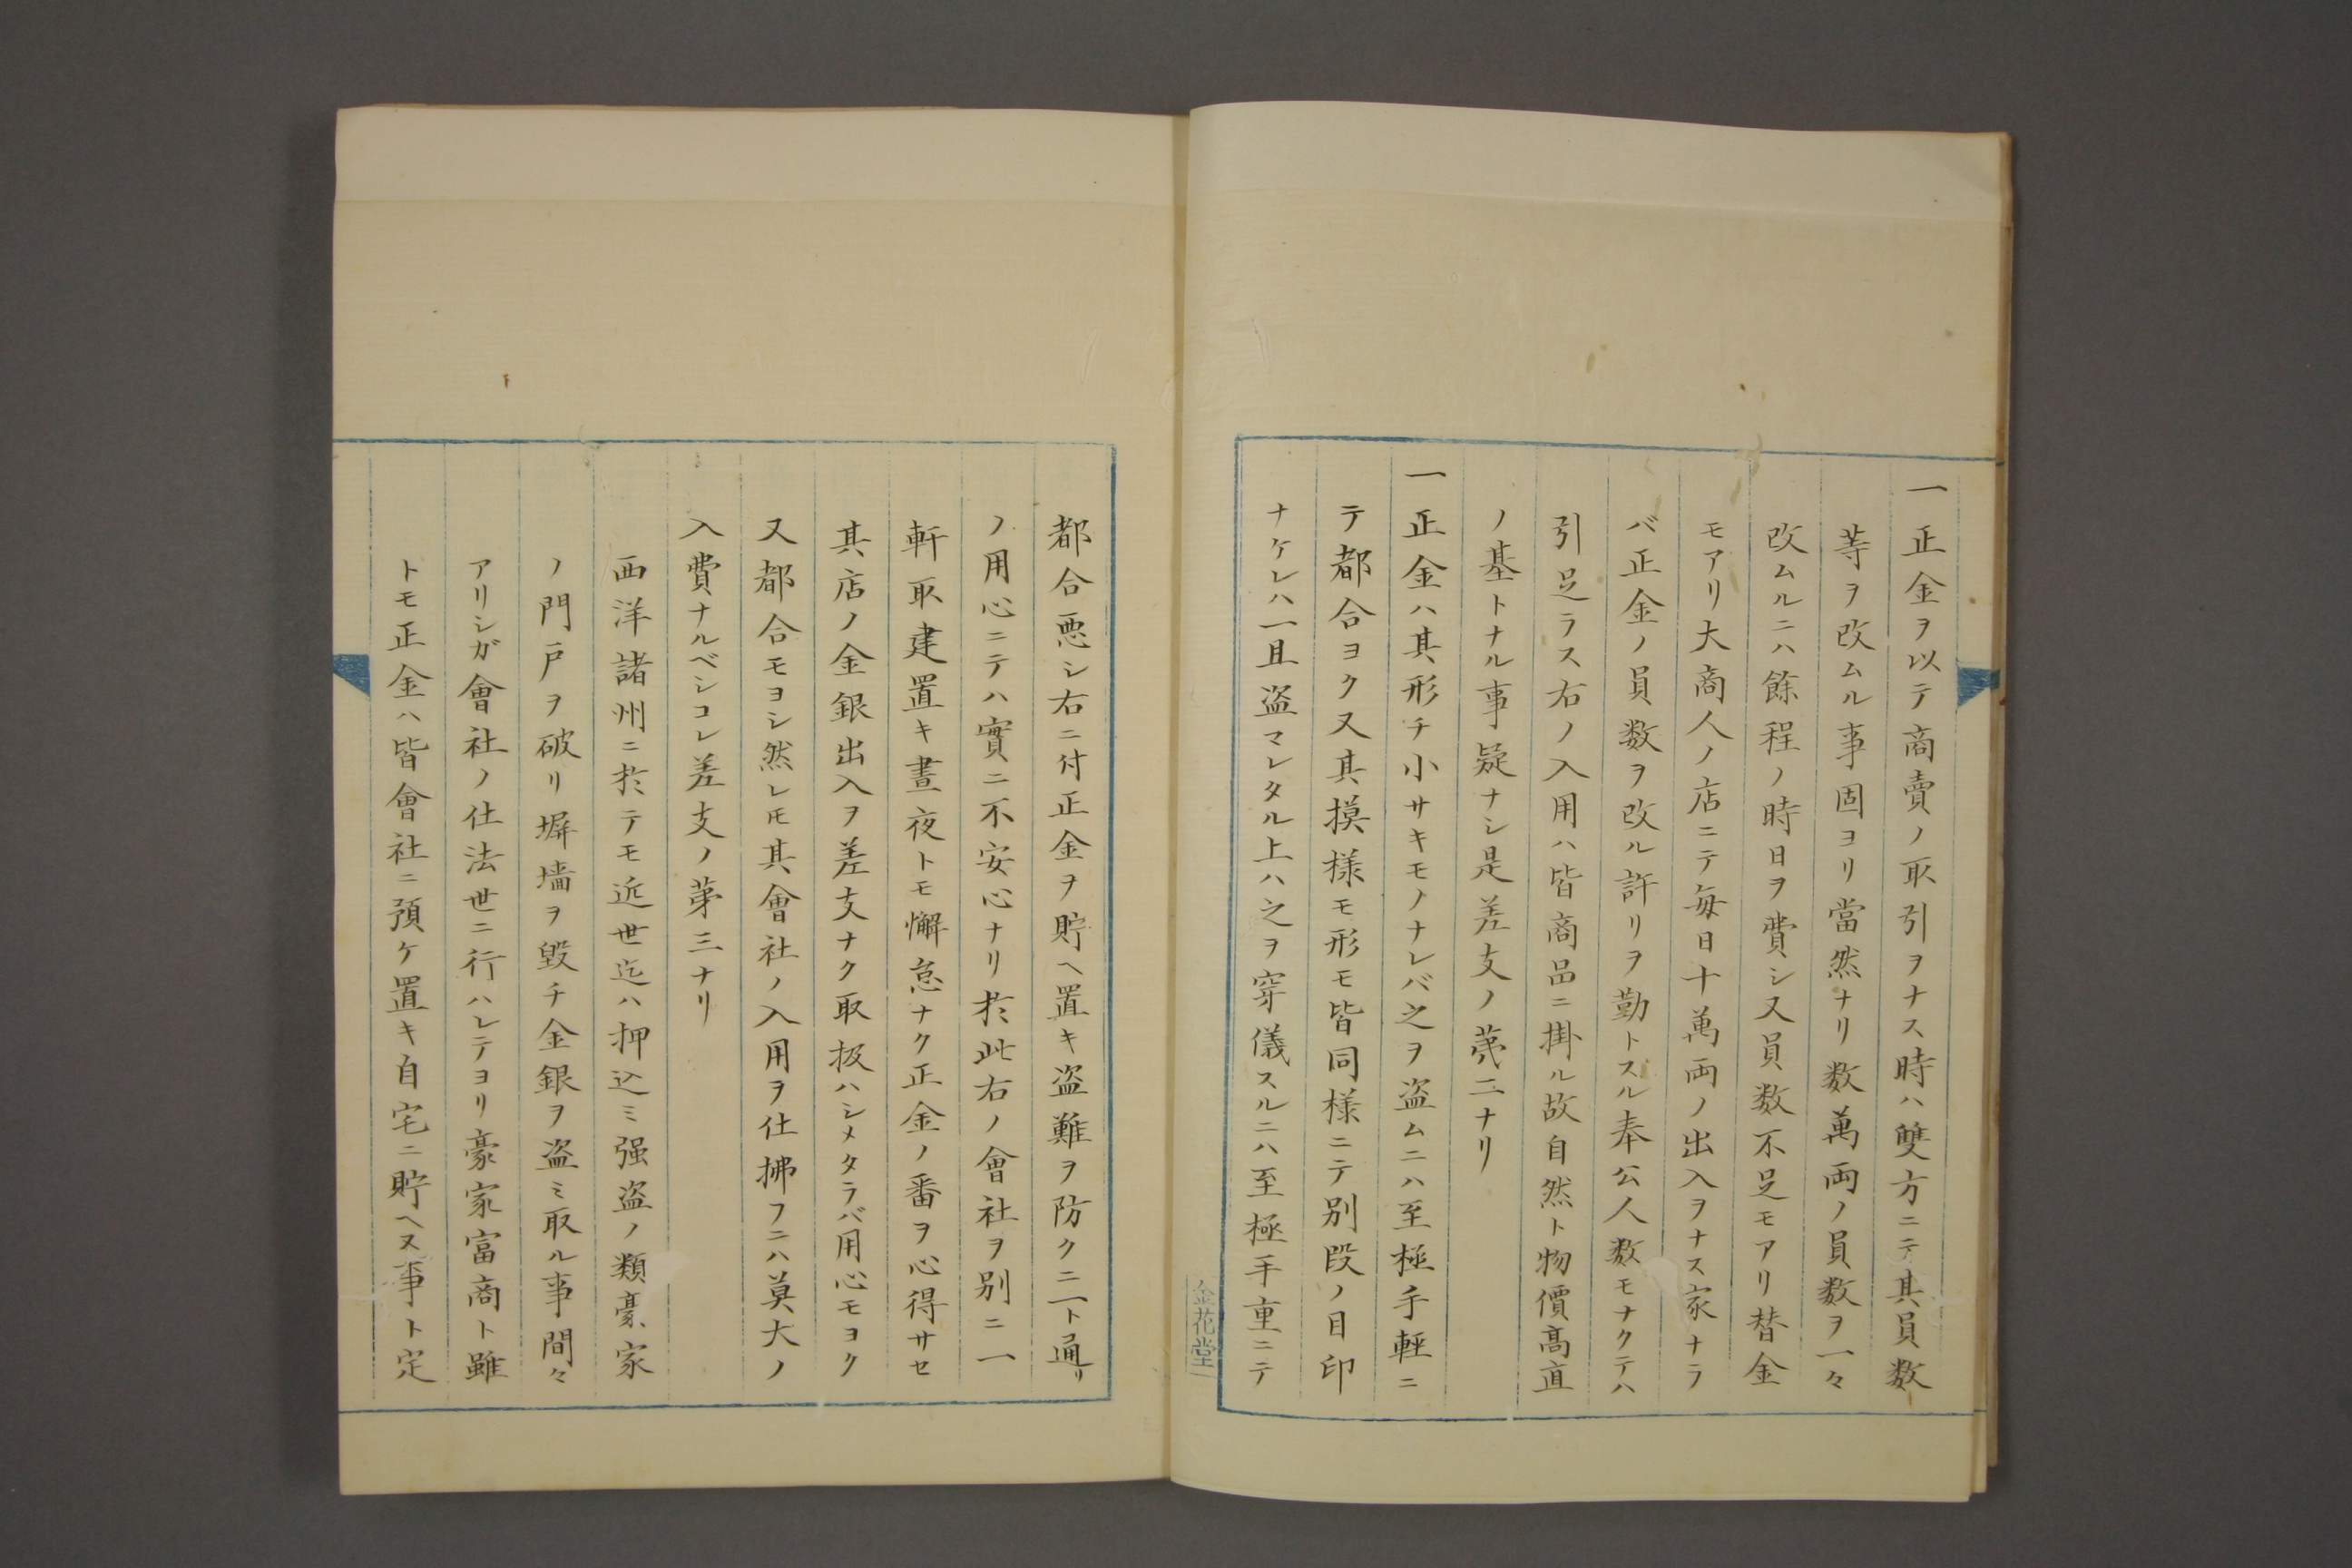 一正金ヲ以テ商賣ノ取引ヲナス時ハ雙方ニテ其員数
等ヲ改ムル事固ヨリ當然ナリ数萬両ノ員数ヲ一々
改ムルニハ餘程ノ時日ヲ費シ又員数不足モアリ替金
モアリ大商人ノ店ニテ毎日十萬両ノ出入ヲナス家ナラ
バ正金ノ員数ヲ改ル許リヲ勤トスル奉公人数モナクテハ
引足ラス右ノ入用ハ皆商品ニ掛ル故自然ト物價高直
ノ基トナル事疑ナシ是差支ノ第二ナリ
一正金ハ其形チ小サキモノナレバ之ヲ盗ムニハ至極手軽ニ
テ都合ヨク又其摸様モ形モ皆同様ニテ別段ノ目印
ナケレハ一旦盗マレタル上ハ之ヲ穿儀スルニハ至極手重ニテ
金花堂
都合悪シ右ニ付正金ヲ貯ヘ置キ盗難ヲ防クニ一ト通リ
ノ用心ニテハ實ニ不安心ナリ於此右ノ會社ヲ別ニ一
軒取建置キ晝夜トモ懈怠ナク正金ノ番ヲ心得サセ
其店ノ金銀出入ヲ差支ナク取扱ハシメタラバ用心モヨク
又都合モヨシ然レ𪜈其會社ノ入用ヲ仕拂フニハ莫大ノ
入費ナルベシコレ差支ノ第三ナリ
西洋諸州ニ於テモ近世迄ハ押込ミ强盗ノ類豪家
ノ門戸ヲ破リ塀墻ヲ毀チ金銀ヲ盗ミ取ル事間々
アリシガ會社ノ仕法世ニ行ハレテヨリ豪家富商ト雖
トモ正金ハ皆會社ニ預ケ置キ自宅ニ貯ヘヌ事ト定